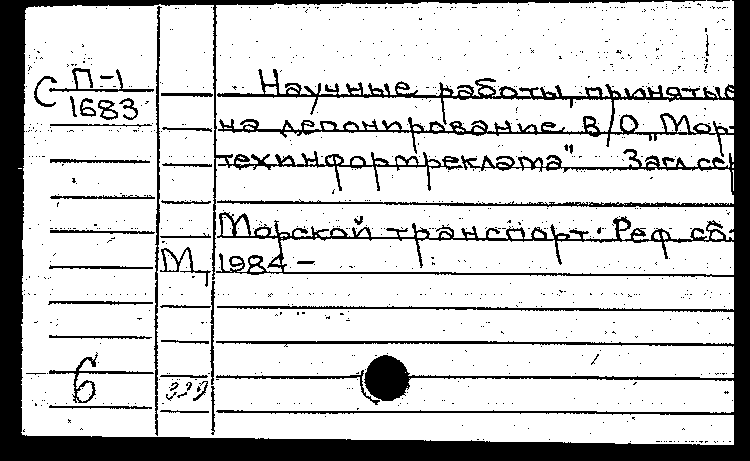 С П-1
1683
Научные работы, принятые
на депонирование В/О „Морт
техинформреклама". Загл. сер
Морской транспорт: Реф. сб.
М., 1984 –
6
339